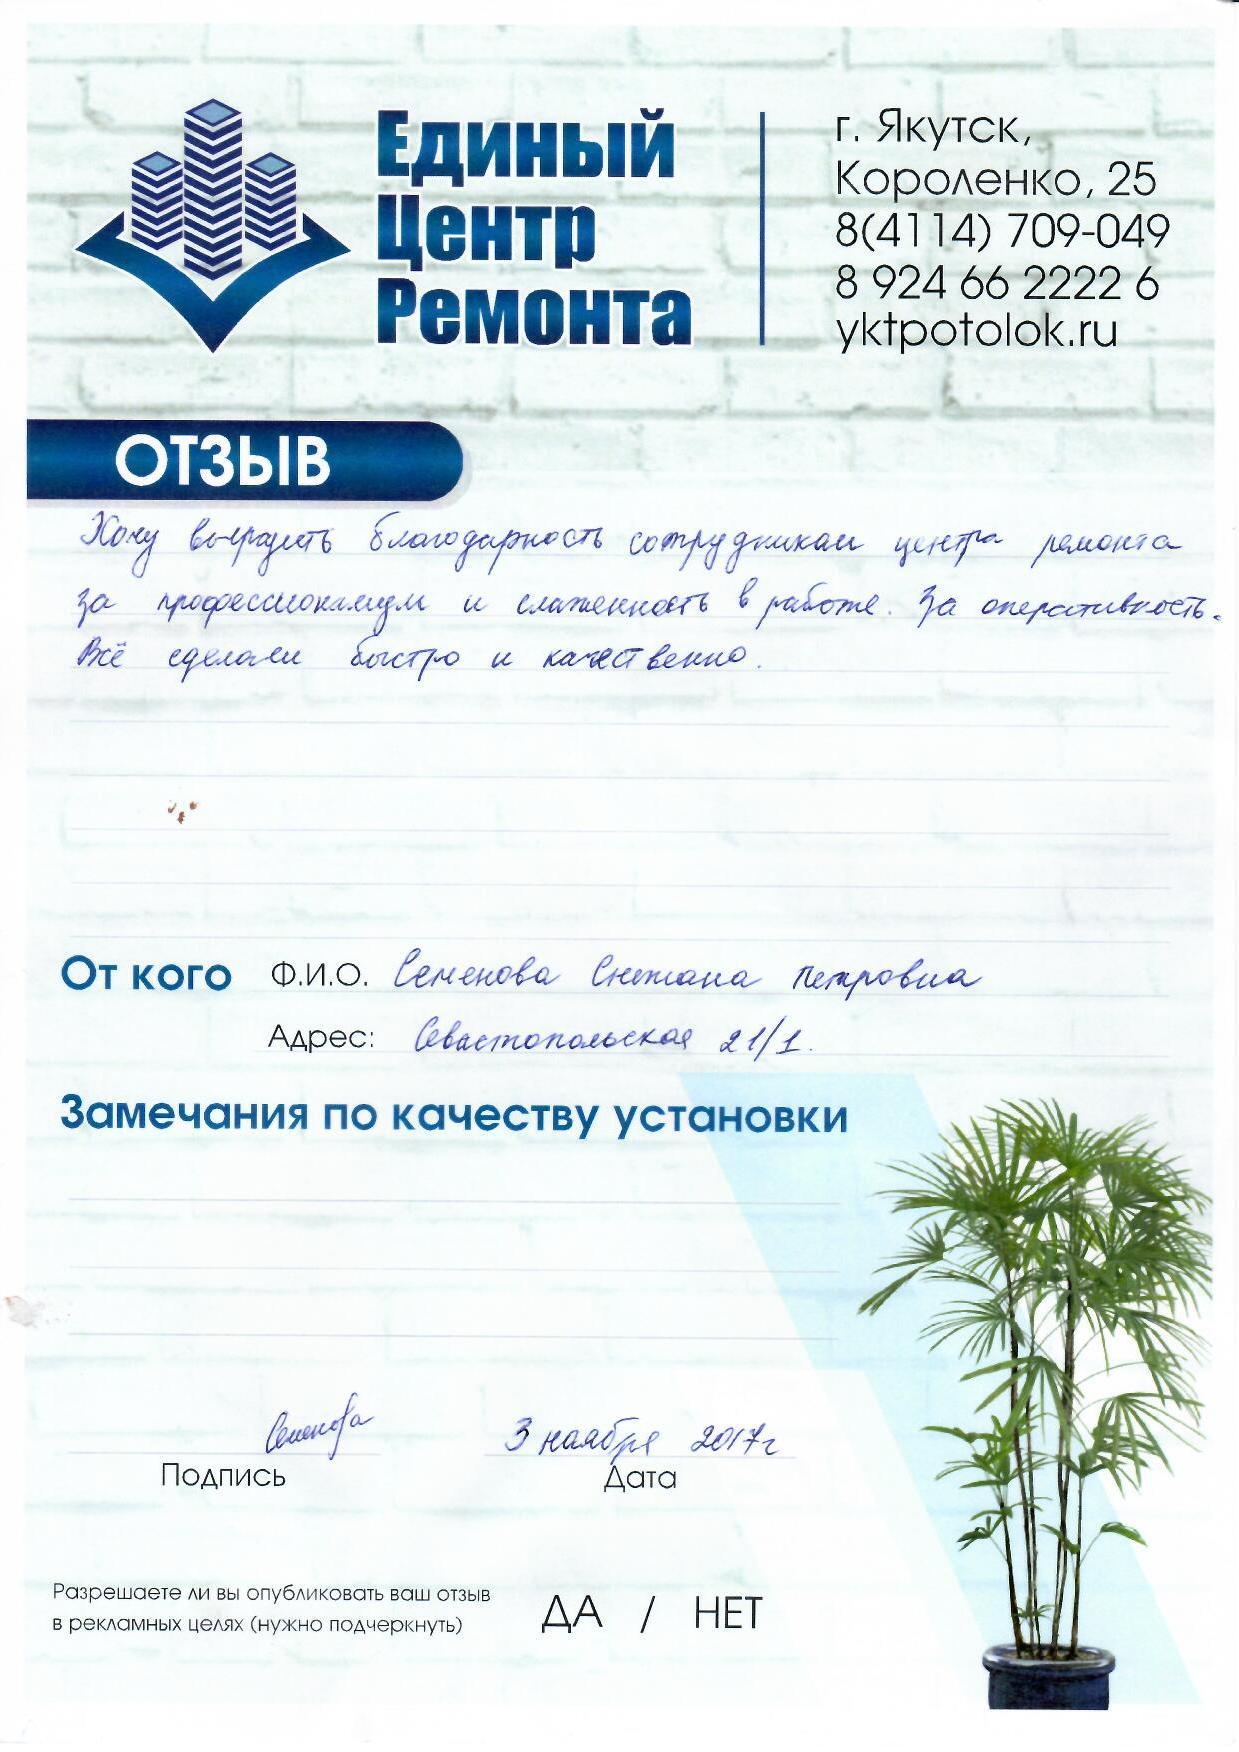 Единый
Центр
Ремонта
г. Якутск,
Короленко, 25
8(4114) 709-049
8 924 66 2222 6
yktpotolok.ru
ОТЗЫВ
Хочу выразить благодарность сотрудникам центра ремонта
за профессионализм и слаженность в работе. За оперативность.
Всё сделали быстро и качественно.
От кого Ф.И.О. Семенова Снежана Петровна
Адрес: Севастопольская 21/1.
Замечания по качеству установки
Семенова 3 ноября 2017г
Подпись Дата
Разрешаете ли вы опубликовать ваш отзыв
в рекламных целях (нужно подчеркнуть) ДА / НЕТ